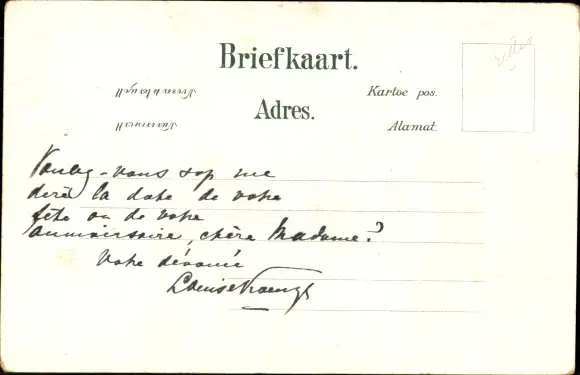 Briefkaart.
Kartoe pos.
Adres.
Alamat.
Voulez-vous svp me
dire la date de votre
fête ou de votre
anniversaire, chère Madame?
Votre dévouée
Louise